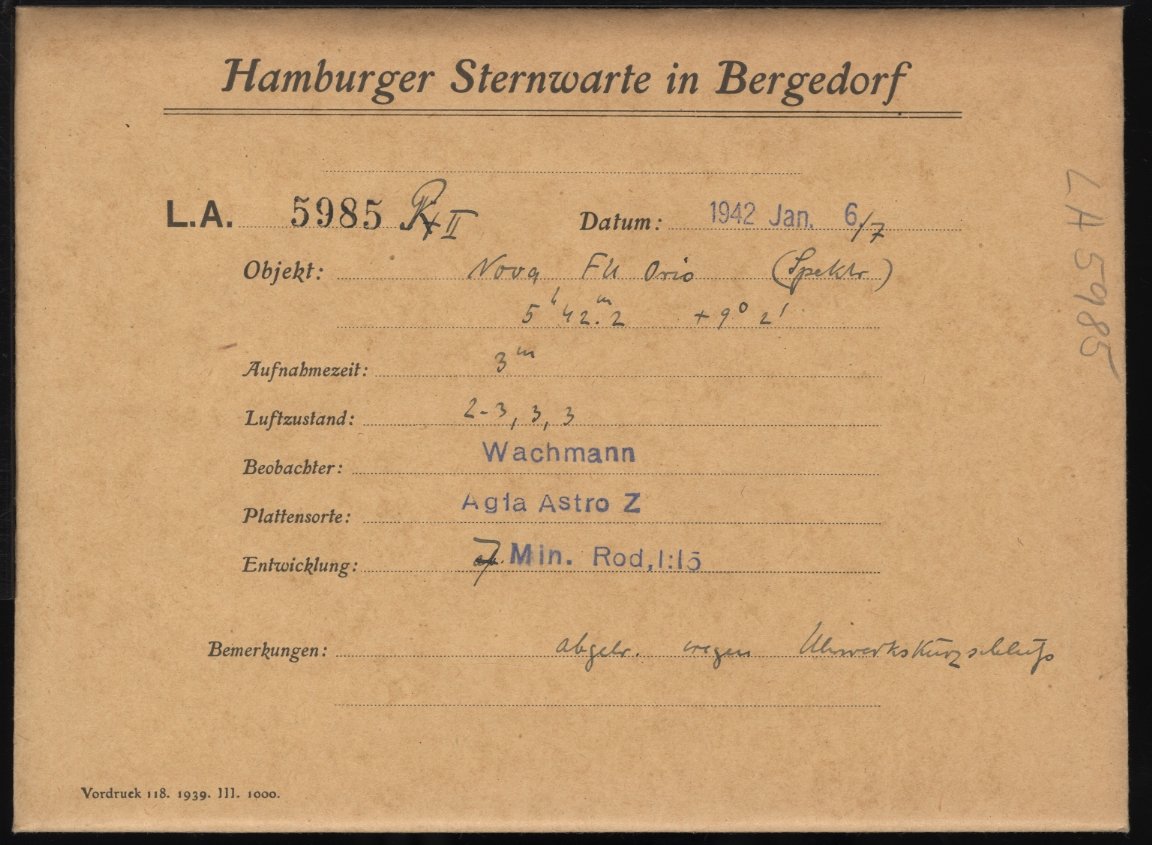 Hamburger Sternwarte in Bergedorf
L.A. 5985 II Datum: 1942 Jan. 6/7
Objekt: Nova FU Orio (Spektr)
5h 42.m2 +9° 2'
Aufnahmezeit: 3m
Luftzustand: 2-3, 3, 3
Beobachter: Wachmann
Plattensorte: Agfa Astro Z
Entwicklung: 7 Min. Rod, 1:15
Bemerkungen: abgebr. wegen Uhrwerkskurzschluß
Vordruck 118. 1939. III. 1000.
LA 5985